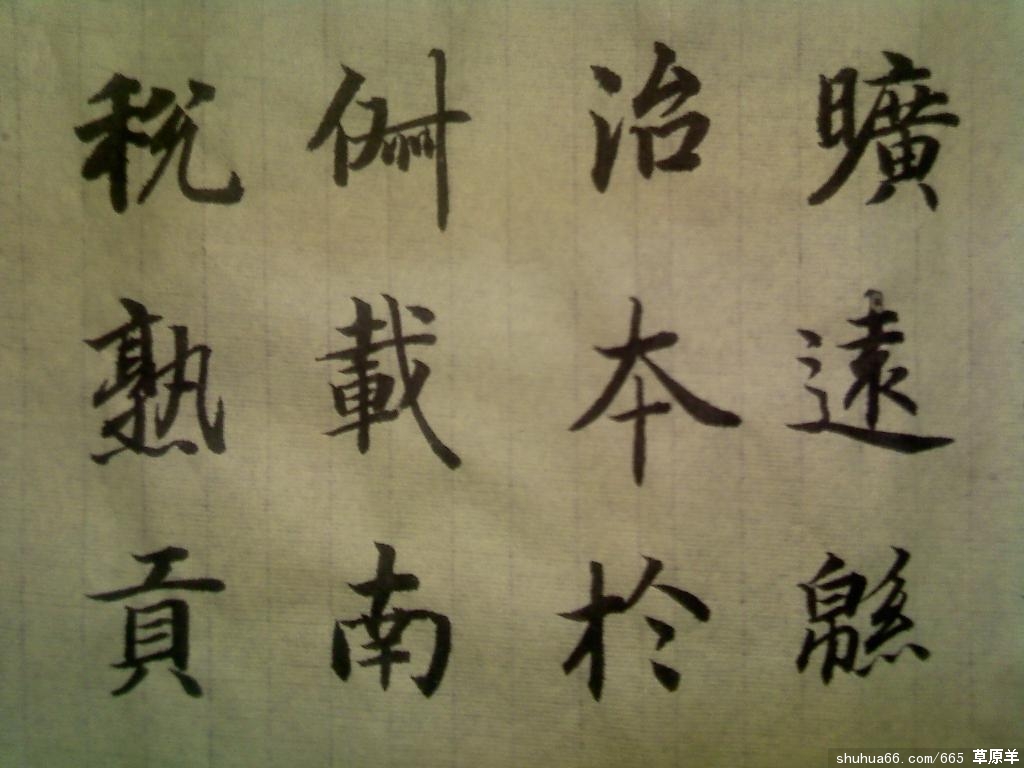 曠遠緜
治本於
俶載南
稅熟貢
shuhua66.com/665 草原羊